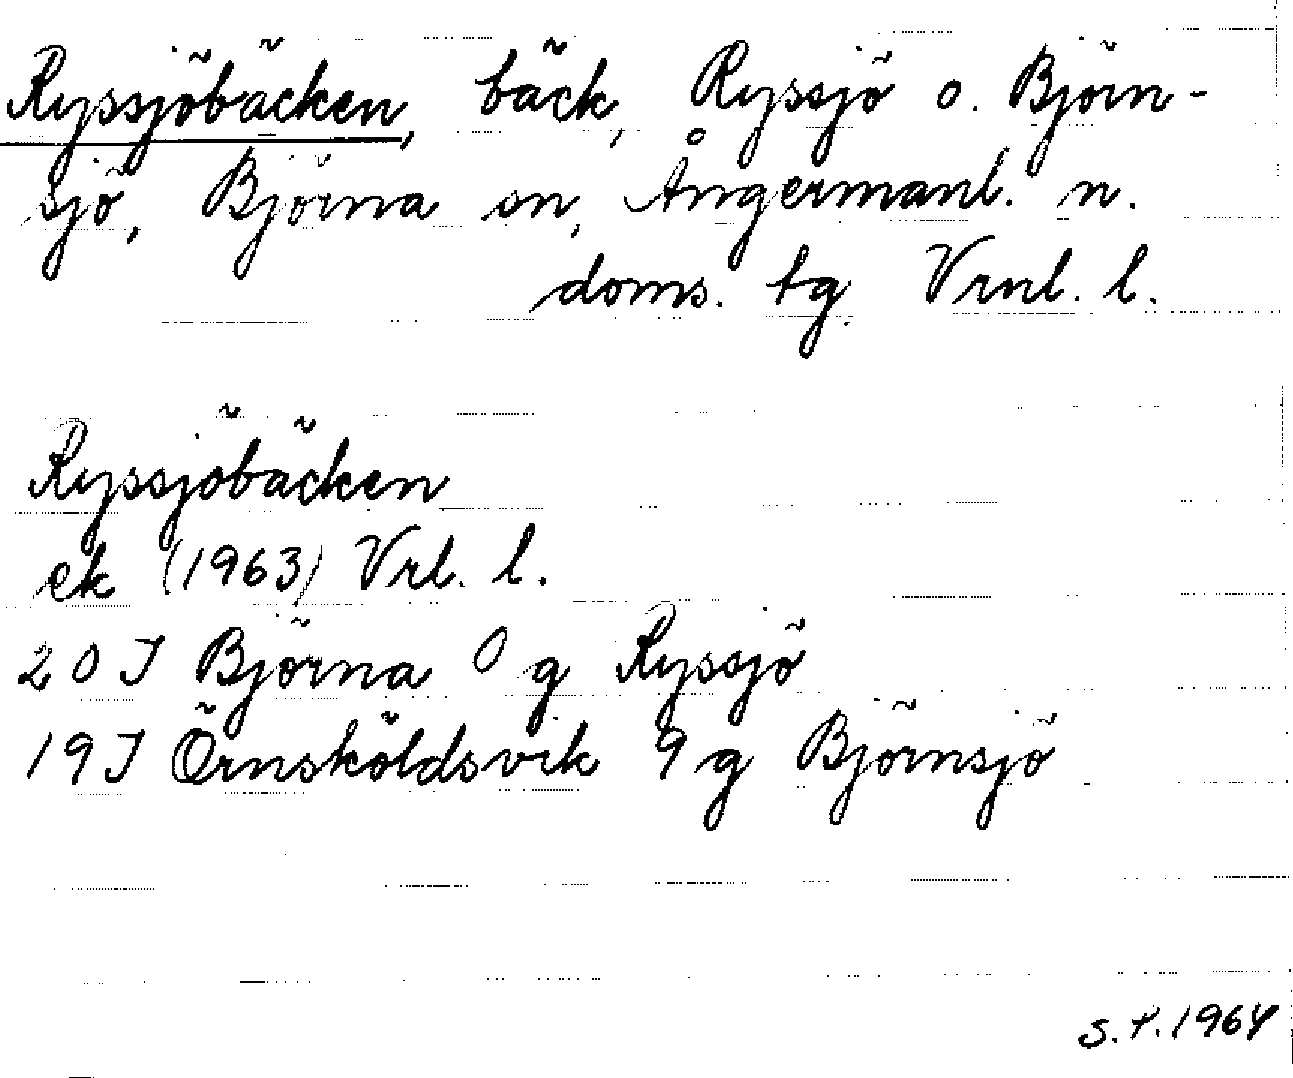 Ryssjöbäcken, bäck, Ryssjö o. Björn-
sjö, Björna sn, Ångermanl. n.
doms. tg Vrnl. l.
Ryssjöbäcken
ek (1963) Vrl. l.
20J Björna 0 g Ryssjö
19J Örnsköldsvik 9 g Björnsjö
S.P. 1964